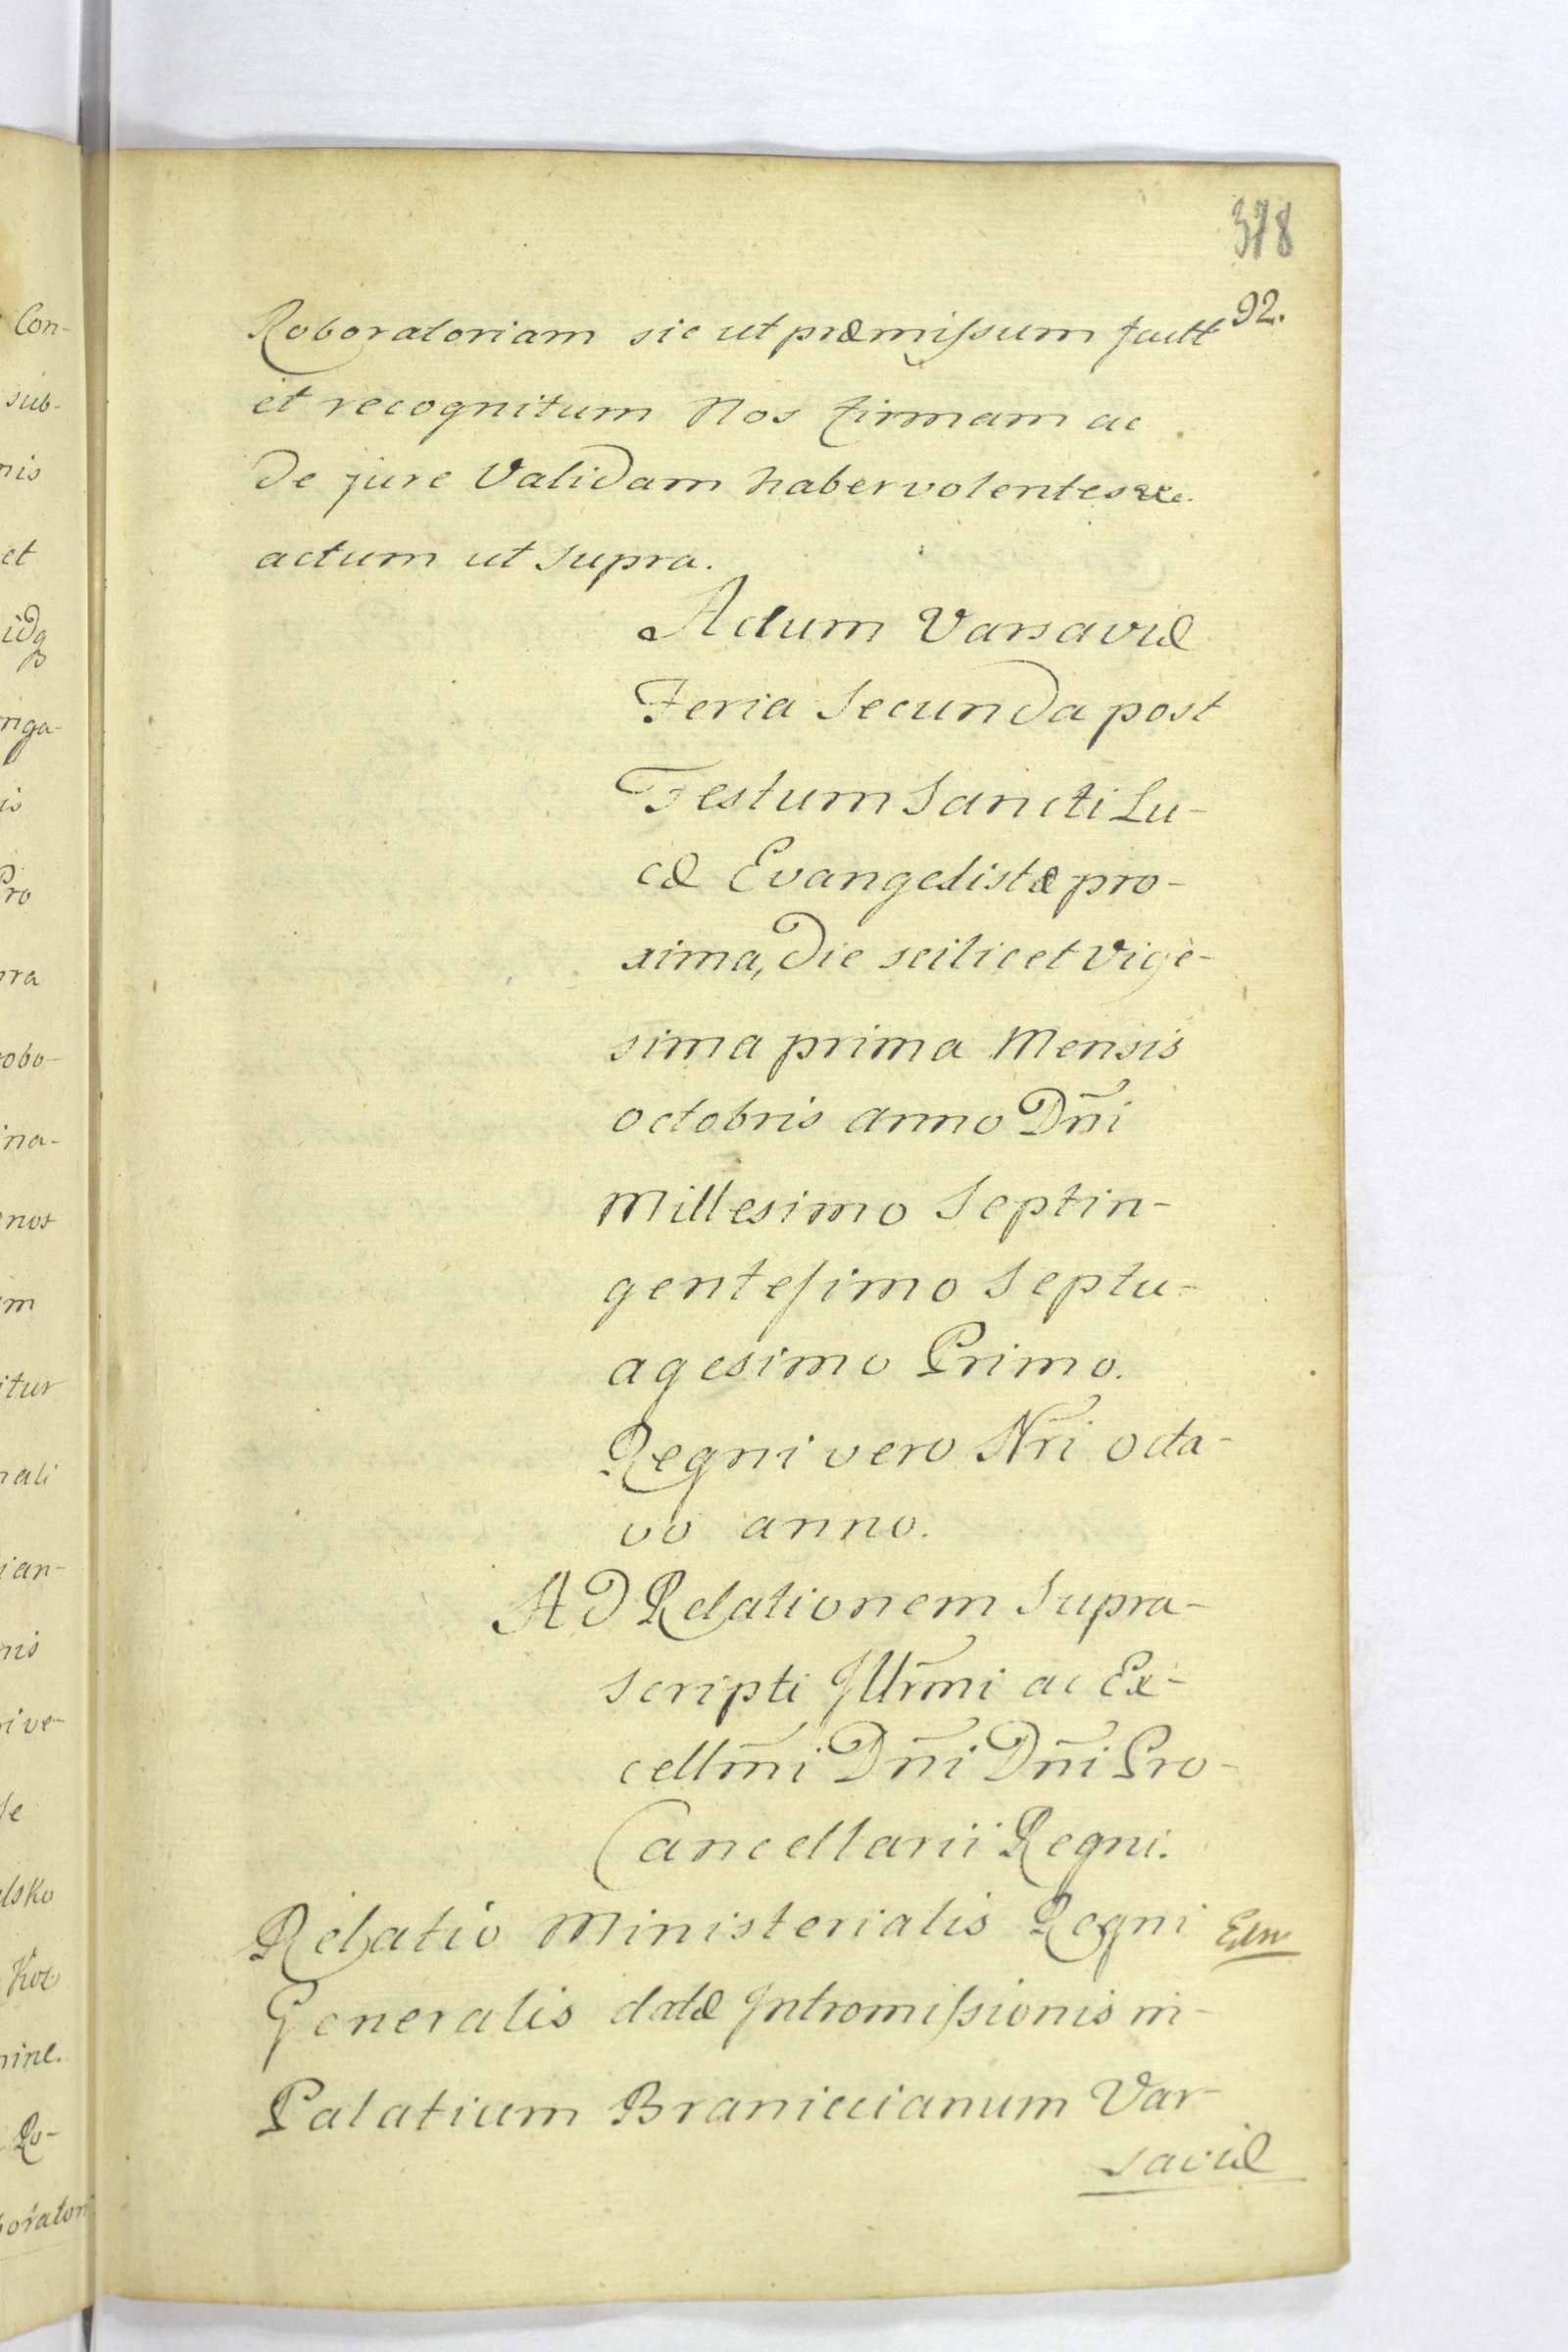 378
92.
Roboratoriam sic ut præmissum
et recognitum Nos firmam ac
de jure Validam haber volentes
actum ut supra.
Actum Varsaviæ
Feria Secunda post
Festum Sancti Lu-
cæ Evangelistæ pro-
xima, die scilicet vige-
sima prima Mensis
octobris anno Dñi
Millesimo Septin-
gentesimo Septu-
agesimo Primo.
Regni vero Nri octa-
vo anno.
AD Relationem Supra-
scripti Illrmi ac Ex-
cellmi Dñi Dñi Pro-
Cancellarii Regni.
Relatio Ministerialis Regni
Generalis datæ Intromissionis in
Palatium Braniccianum Var-
saviæ